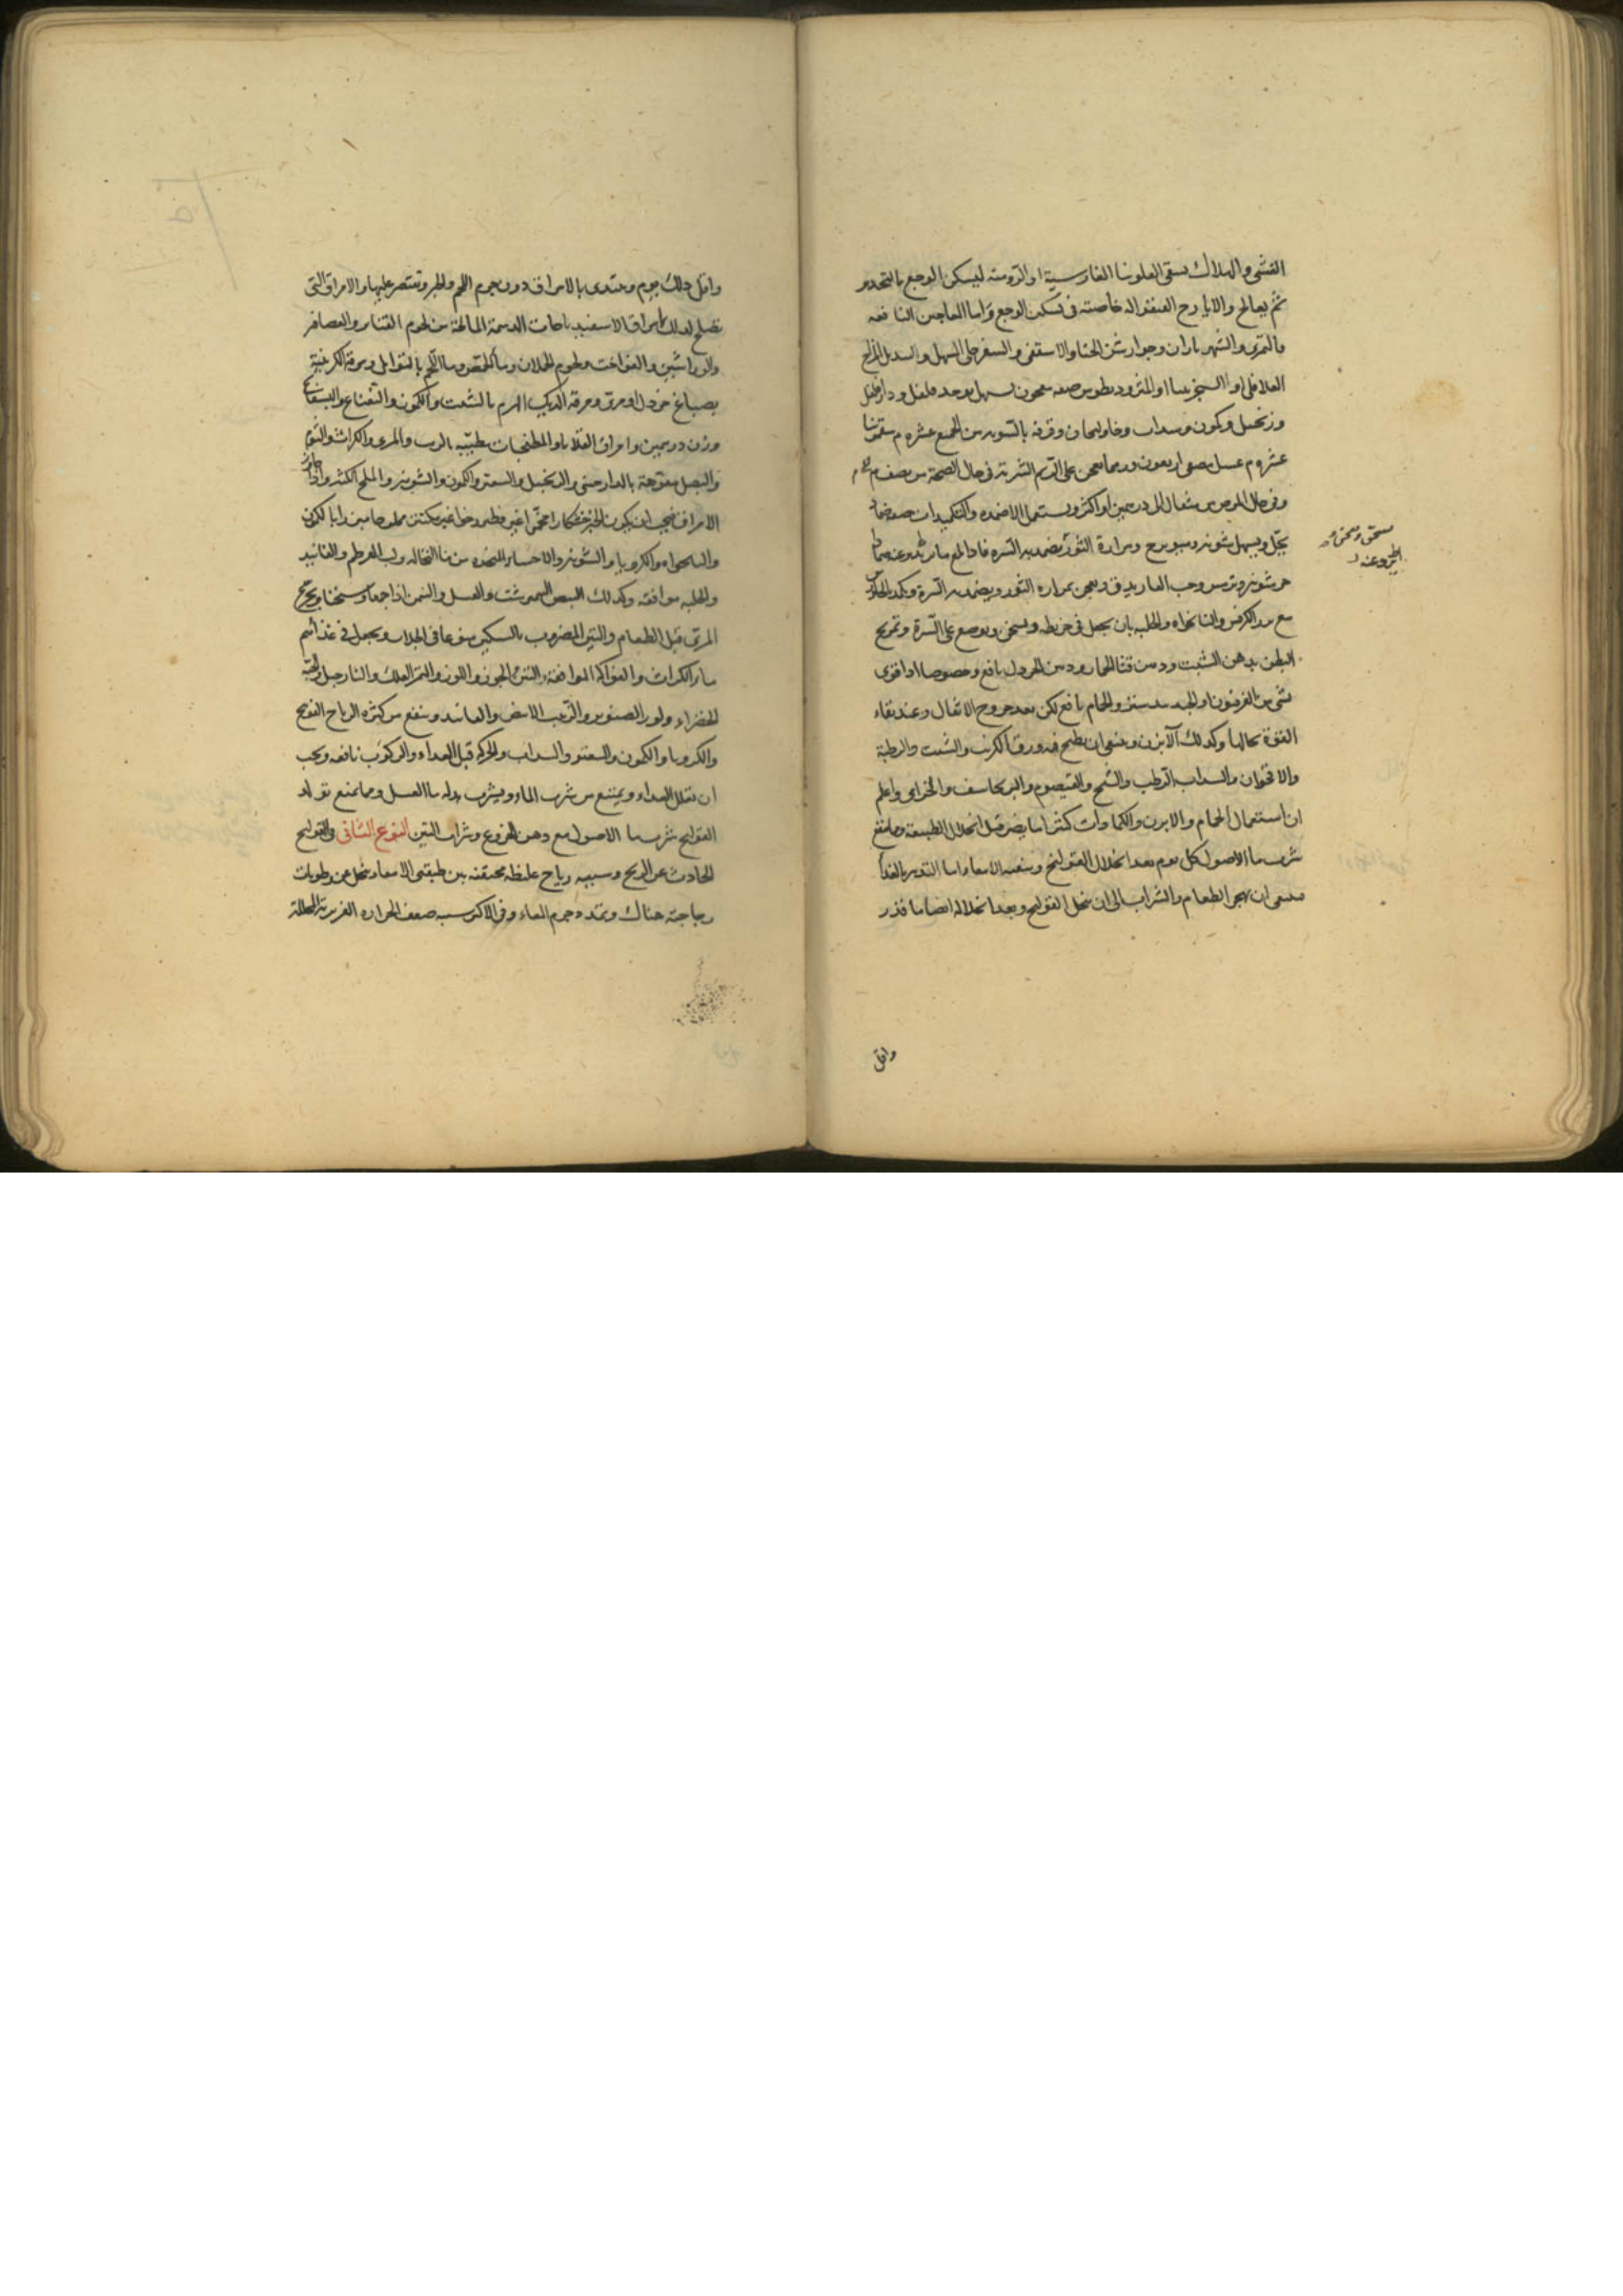 الغشى والهلاك يسقى الفلونيا الفارسية او الرومية ليسكن الوجع بالتخدير
ثم يعالج والايارج الفيقرا له خاصية فى تسكين الوجع واما المعاجين النافعة
فالتمرى والشهرياران وجوارشن الاسقفى والسفرجلى المسهل
الفلافلى او السجزينيا او المثروديطوس صفة معجون مسهل يوخذ فلفل ودارفلفل
وزنجبيل وكمون وسداب وخاولنجان وقرفة بالسوية من الجميع عشرة م سقمونيا
عشرة م عسل مصفى اربعون درهما يعجن على الرسم الشربة فى حال الصحة من نصف م الى م
وفى حال المرض من مثقال الى درهمين او اكثر ويستعمل الاضمدة والتكميدات صفة ضماد
يحل ويسهل شونيز ومرارة الثور يضمد به السرة
شونيز وترمس وحب الغار يدق ويعجن بمرارة الثور ويضمد به السرة ويكمد بالجاورس
مع بزر الكرفس والنانخواه والحلبة بان يجعل فى خريطة ويسخن ويوضع على السرة وتمريخ
البطن بدهن الشبت ودهن قثا الحمار ودهن الخردل نافع وخصوصا اذا قوى
بشى من الفربيون او الجندبيدستر والحمام نافع لكن بعد خروج الاثفال وعند بقاء
القوة بحالها وكذلك الآبزن وينبغى ان يطبخ فيه ورق الكرنب والشبت والرطبة
والاقحوان والسداب الرطب والشيح والقيصوم والبرنجاسف والخزامى واعلم
ان استعمال الحمام والابزن والكمادات كثيرا ما يضر قبل انحلال الطبيعة ومما ينفع
شرب ما الاصول كل يوم بعد انحلال القولنج وتنقية الامعا واما التدبير بالغذا
فينبغى ان يهجر الطعام والشراب الى ان ينحل القولنج وبعد انحلاله ايضا ما قدر
واقل
واقل ذلك يوم ويغتذى بالامراق دون جرم اللحم والخبز ويقتصر عليها والامراق التى
تصلح لذلك امراق الاسفيدباجات الدسمة المالحة من لحوم القنابر والعصافر
والوراشين والفواخت ولحوم الحملان وما الحمص وما اللحم بالتوابل ومرقة الكرنبية
بصباغ خردل او مرى ومرقة الديك الهرم بالشبت والكمون والنعناع والبسفايج
وزن درهمين وامراق القلايا والمطجنات مطيبة بالزيت والمرى والكراث والثوم
والبصل مفوحة بالدارصينى والزنجبيل والسعتر والكمون والشونيز والملح الكثير واذا جاوز
الامراق فيجب ان يكون الخبز خشكارا مخمرا غير فطير رخوا غير مكتنز مملحا مبزرا بالكمون
والنانخواه والكرويا والشونيز والاحساء المتخذة من ما النخالة ولب القرطم والفانيذ
والحلبة موافقة وكذلك البيض النيمرشت والعسل والسمن اذا جمعا وسخنا ويجرع
المرى قبل الطعام والتين المضروب بالسكين منقوعا فى الجلاب ويجعل فى غذائهم
ما الكراث والفواكه الموافقة التين والجوز واللوز والتمر العلك والنارجيل والحبة
الخضراء ولوز الصنوبر والزبيب الابيض والفانيد وينفع من كثرة الرياح
والكرويا والكمون والسعتر والسداب والحركة قبل الغداء والركوب نافعة ويجب
ان يقلل الغداء ويمتنع من شرب الماء ويشرب بدله ما العسل ومما يمنع تولد
القولنج شرب ما الاصول مع دهن الخروع وشراب التين النوع الثانى فى القولنج
الحادث عن الريح وسببه رياح غليظة محتقنة بين طبقتى الامعا وتنحل عن رطوبات
زجاجية هناك وتمدد جرم المعاء وفى الاكثر سببه ضعف الحرارة الغريزية المحللة